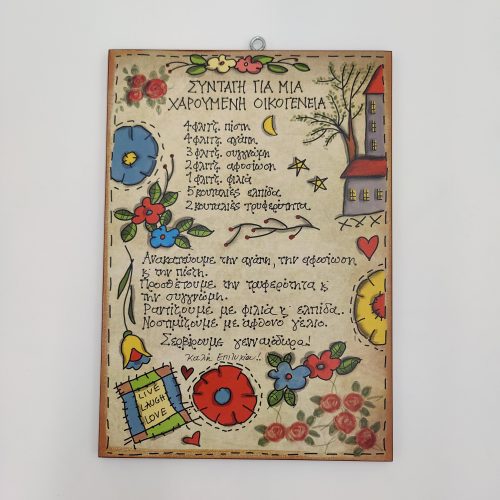 ΣΥΝΤΑΓΗ ΓΙΑ ΜΙΑ
ΧΑΡΟΥΜΕΝΗ ΟΙΚΟΓΕΝΕΙΑ
4 φλιτζ. πίστη
4 φλιτζ. αγάπη
3 φλιτζ. συγγνώμη
2 φλιτζ. αφοσίωση
1 φλιτζ. φιλιά
5 κουταλιές ελπίδα
2 κουταλιές τρυφερότητα
Ανακατεύουμε την αγάπη, την αφοσίωση
κ' την πίστη.
Προσθέτουμε την τρυφερότητα κ'
την συγγνώμη.
Ραντίζουμε με φιλιά κ' ελπίδα..
Νοστιμίζουμε με άφθονο γέλιο.
Σερβίρουμε γενναιόδωρα!
Καλή Επιτυχία!!
LIVE
LAUGH
LOVE